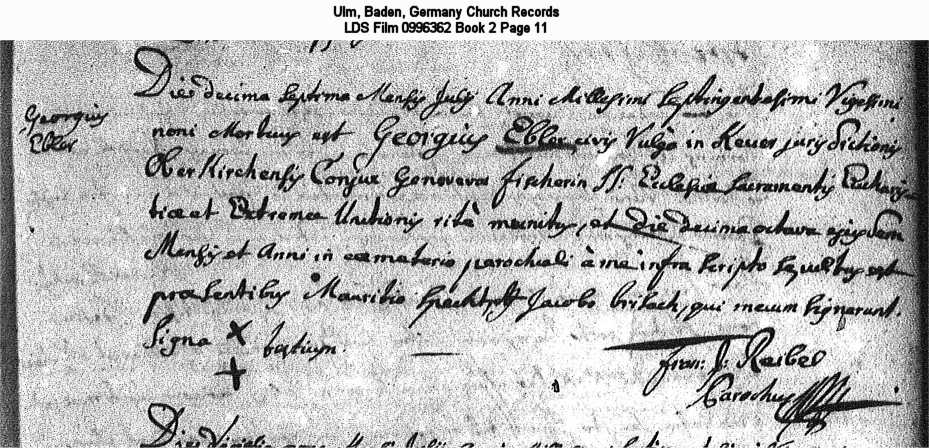 Ulm, Baden, Germany Church Records
LDS Film 0996362 Book 2 Page 11
Die decima septima Mensis Julij Anni Millesimi Septingentesimi Vigesimi
Georgius
Ebler
noni Mortuus est Georgius Ebler civis Vulgo in Keuer jurisdictionis
Oberkirchensis Conjux Genovevae Fischerin SS: Ecclesiae Sacramentis Eucharis-
tiae et Extremae Unctionis ritè munitus, et die decima octava ejusdem
Mensis et Anni in caemeterio parochiali à me infra scripto sepultus est
praesentibus Mauritio et Jacobo qui mecum signarunt.
Signa x testium.
+
Fran: J: Reibel
Parochus